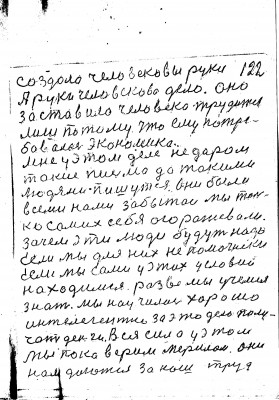 создала человековы руки 122
А руки человеково дело. оно
заставило человека трудится
лиш потому что ему потре-
бовалас экономика.
мне у этом деле недаром
такие писма да такими
людями пишутся. они были
всеми нами забытое мы тол-
ко самих себя огораживали.
зачем эти люди будут надо
если мы для них не помогшики
если мы сами у этих условий
находилися. разве мы учемся
знат. мы научилис хорошо
интелегентно за это дело полу-
чат денги. Вся сила у этом
мы пока верим мерилам. они
нам даются за наш труд